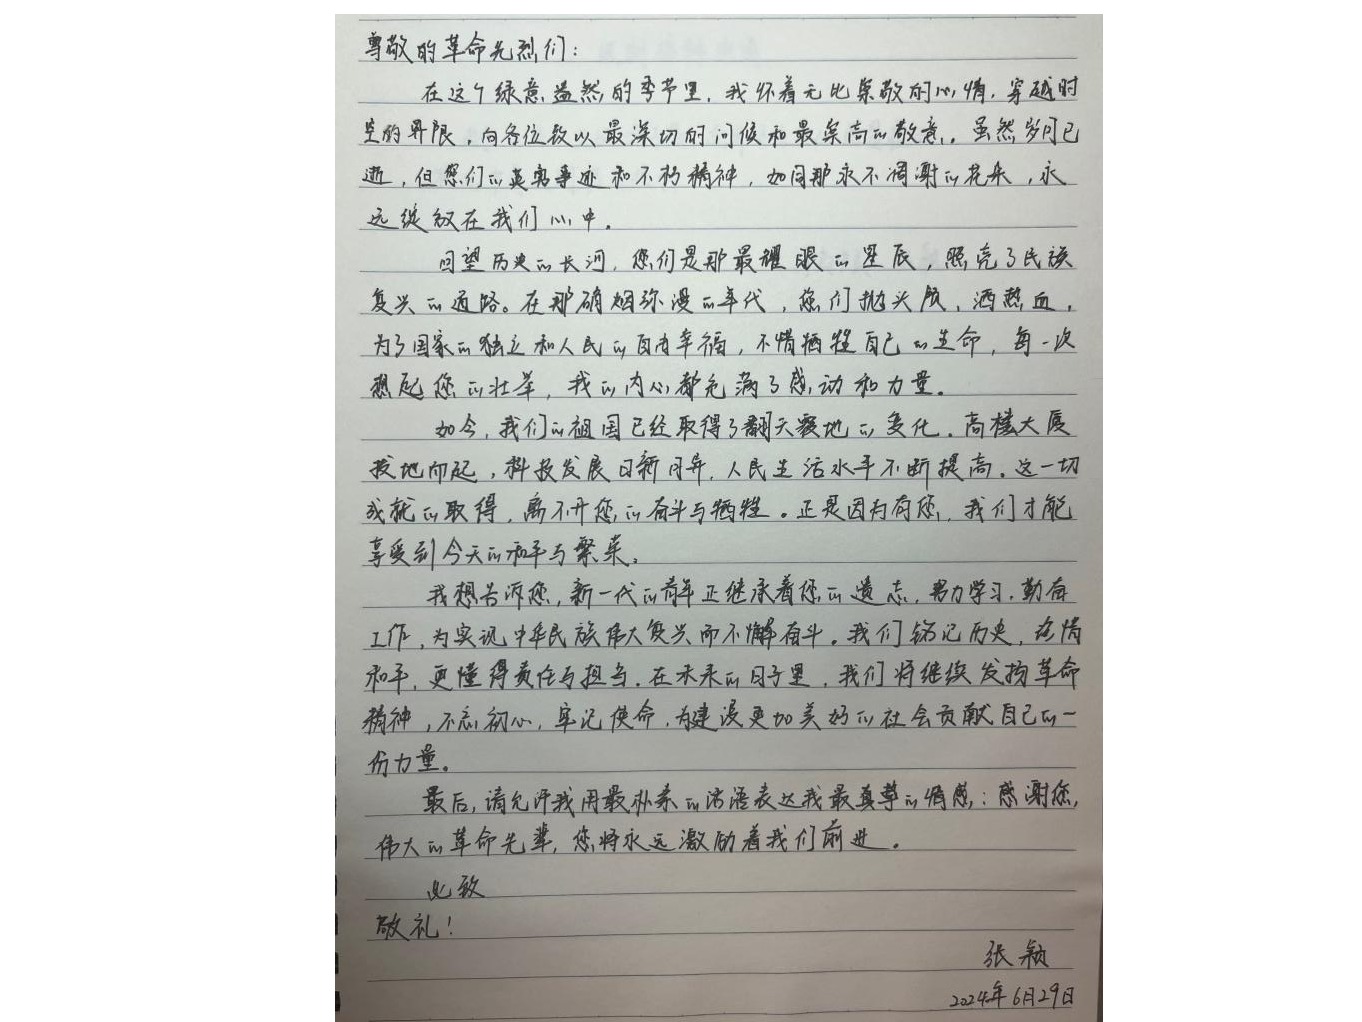 尊敬的革命先烈们：
在这个绿意盎然的季节里，我怀着无比崇敬的心情，穿越时
空的界限，向各位致以最深切的问候和最崇高的敬意。虽然岁月已
逝，但您们的英勇事迹和不朽精神，如同那永不凋谢的花朵，永
远绽放在我们心中。
回望历史的长河，您们是那最耀眼的星辰，照亮了民族
复兴的道路。在那硝烟弥漫的年代，您们抛头颅、洒热血，
为了国家的独立和人民的自由幸福，不惜牺牲自己的生命，每一次
想起您的壮举，我的内心都充满了感动和力量。
如今，我们的祖国已经取得了翻天覆地的变化。高楼大厦
拔地而起，科技发展日新月异，人民生活水平不断提高。这一切
成就的取得，离不开您的奋斗与牺牲。正是因为有您，我们才能
享受到今天的和平与繁荣。
我想告诉您，新一代的青年正继承着您的遗志，努力学习，勤奋
工作，为实现中华民族伟大复兴而不懈奋斗。我们铭记历史，珍惜
和平，更懂得责任与担当。在未来的日子里，我们将继续发扬革命
精神，不忘初心，牢记使命，为建设更加美好的社会贡献自己的一
份力量。
最后，请允许我用最朴素的话语表达我最真挚的情感：感谢您，
伟大的革命先辈，您将永远激励着我们前进。
此致
敬礼！
张颖
2024年6月29日